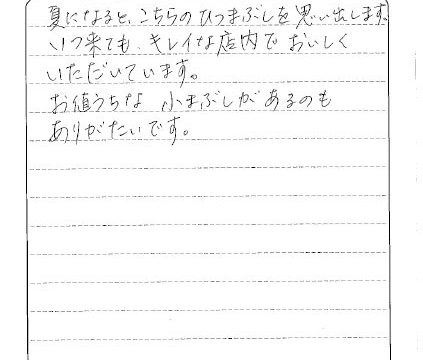 夏になると、こちらのひつまぶしを思い出します。
いつ来ても、キレイな店内でおいしく
いただいています。
お値うちな 小まぶしがあるのも
ありがたいです。